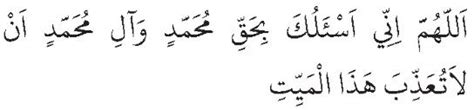 اَللّٰهُمَّ اِنِّي اَسْئَلُكَ بِحَقِّ مُحَمَّدٍ وَآلِ مُحَمَّدٍ اَنْ
لاَتُعَذِّبَ هَذَا الْمَيِّتِ